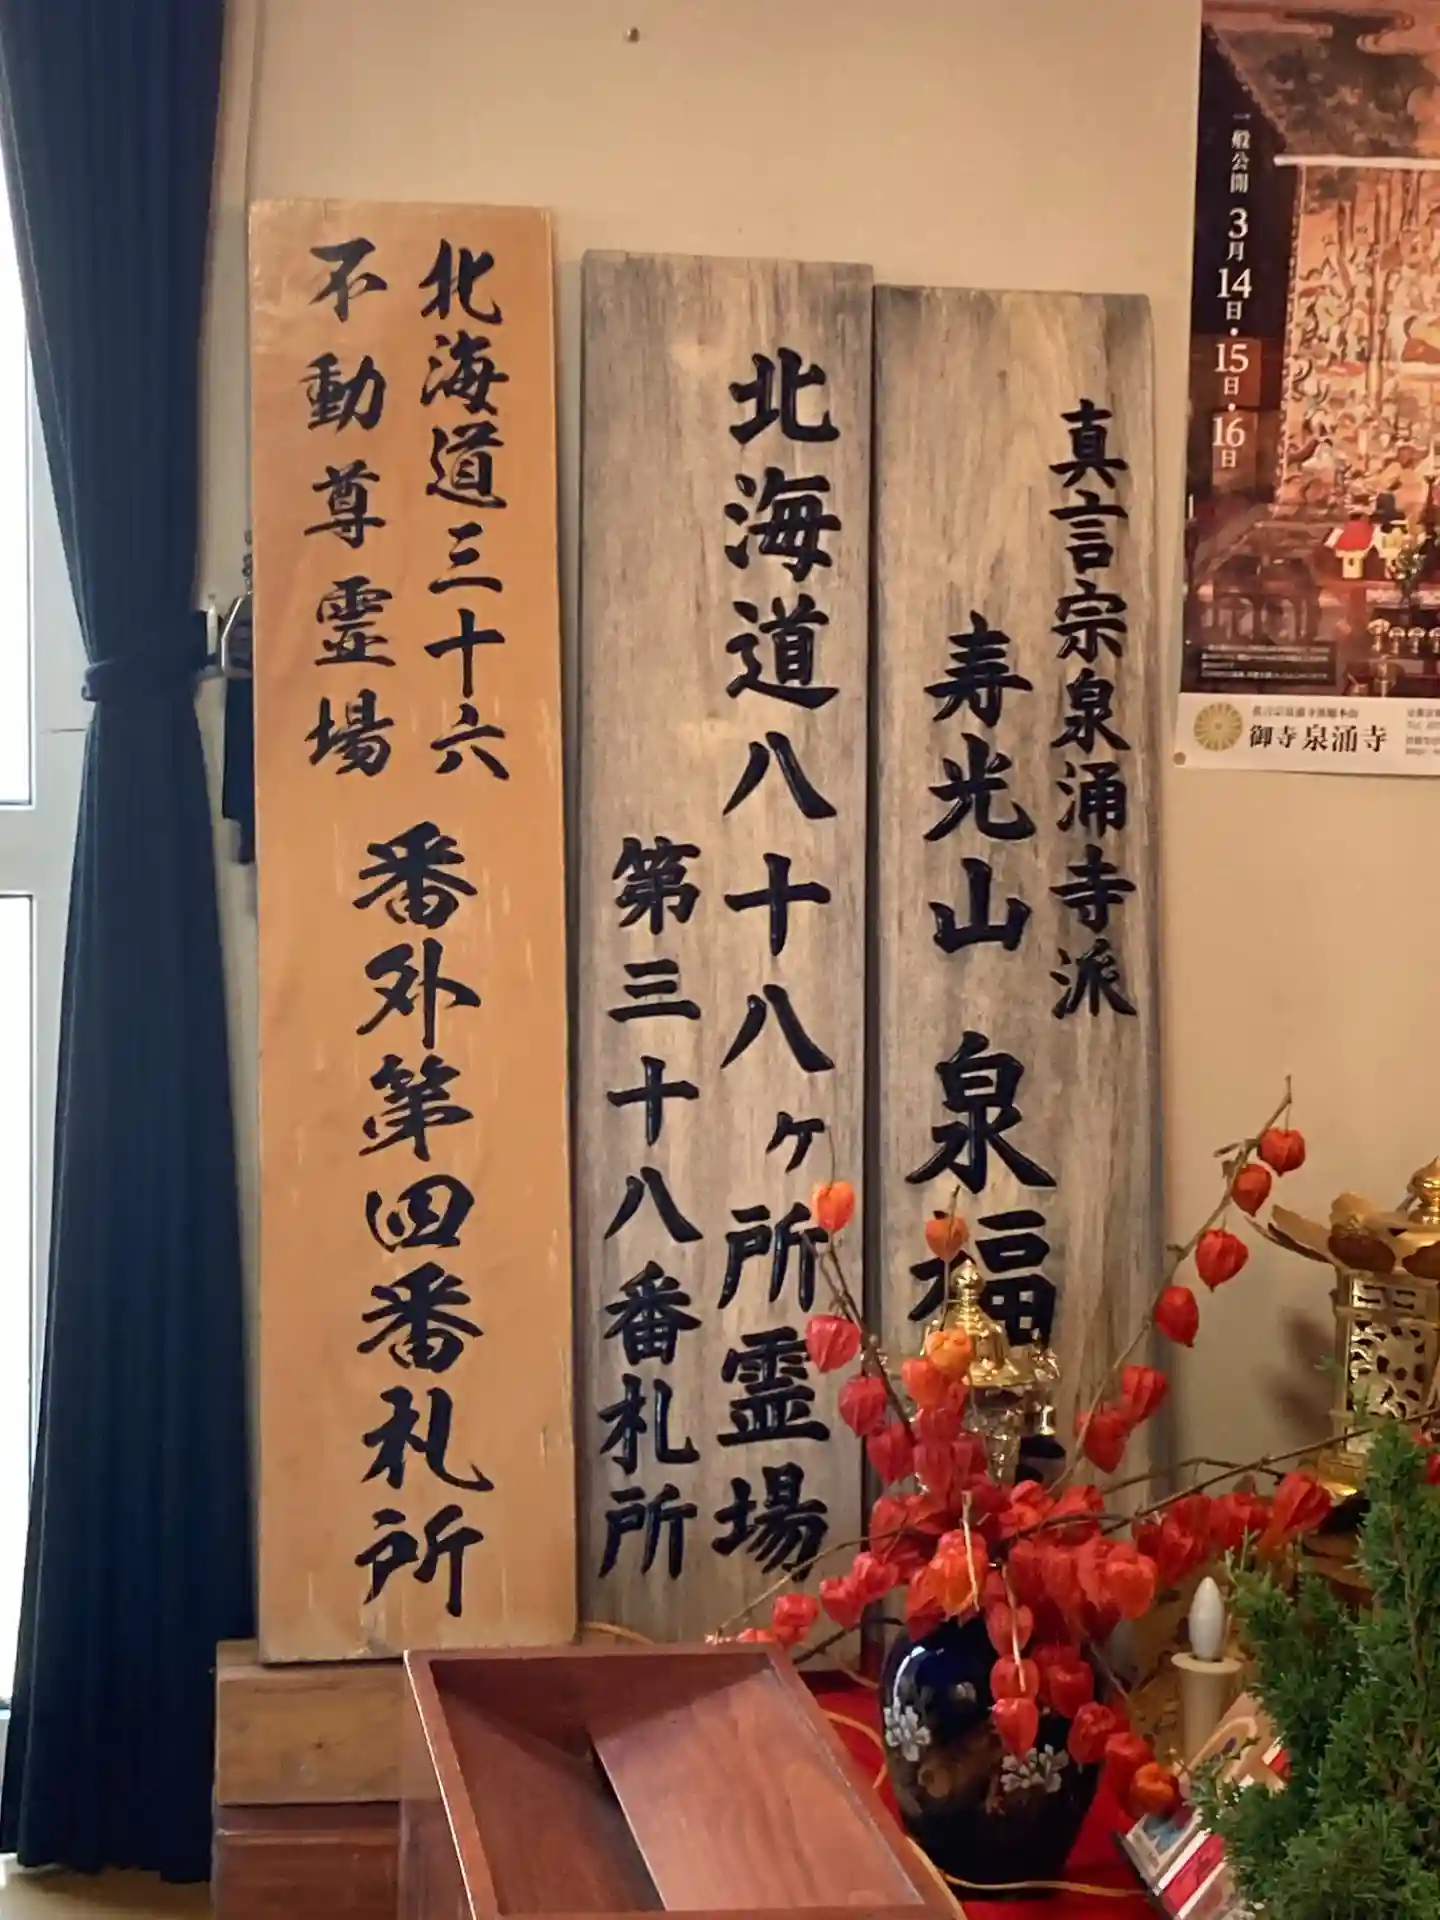 北海道三十六
不動尊霊場
番外第四番札所
北海道八十八ヶ所霊場
第三十八番札所
真言宗泉涌寺派
寿光山 泉福
一般公開 3月14日・15日・16日
真言宗泉涌寺派総本山
御寺 泉涌寺